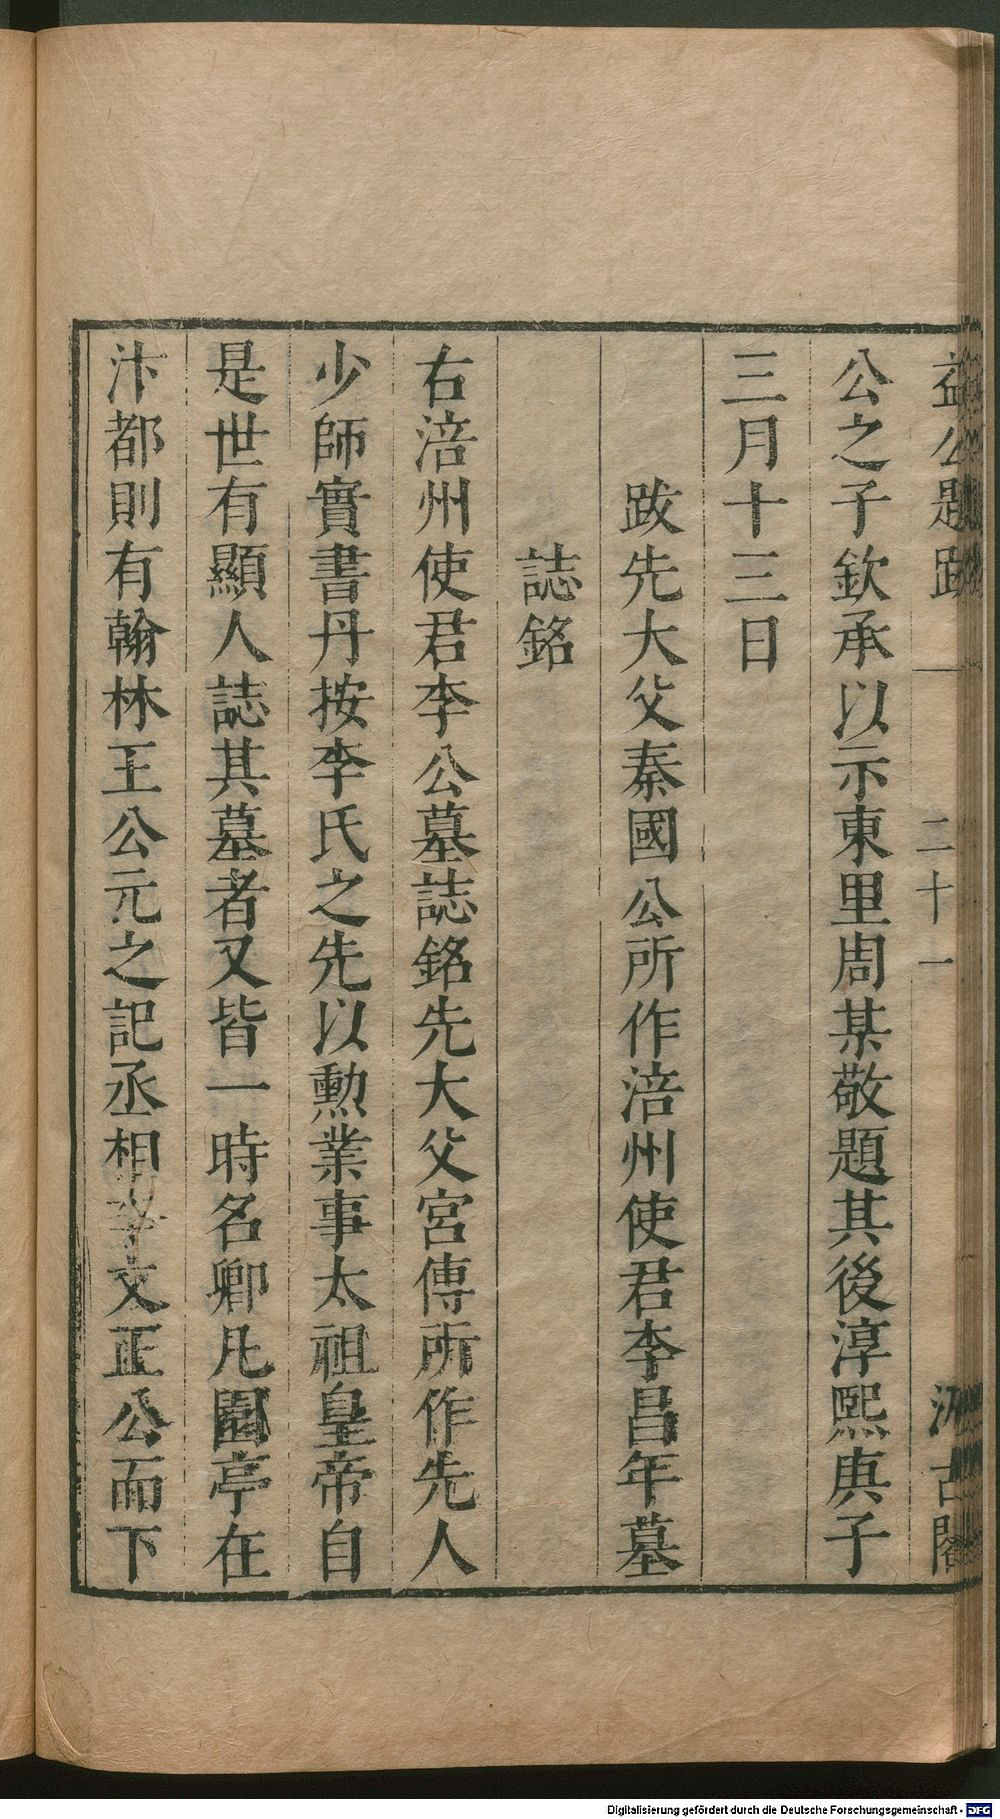 益公題跋 二十一 汲古閣
公之子欽承以示東里周某敬題其後淳熙庚子
三月十三日
跋先大父秦國公所作涪州使君李昌年墓
誌銘
右涪州使君李公墓誌銘先大父宮傅所作先人
少師實書丹按李氏之先以勲業事太祖皇帝自
是世有顯人誌其墓者又皆一時名卿凡園亭在
汴都則有翰林王公元之記丞相李文正公而下
Digitalisierung gefördert durch die Deutsche Forschungsgemeinschaft - DFG